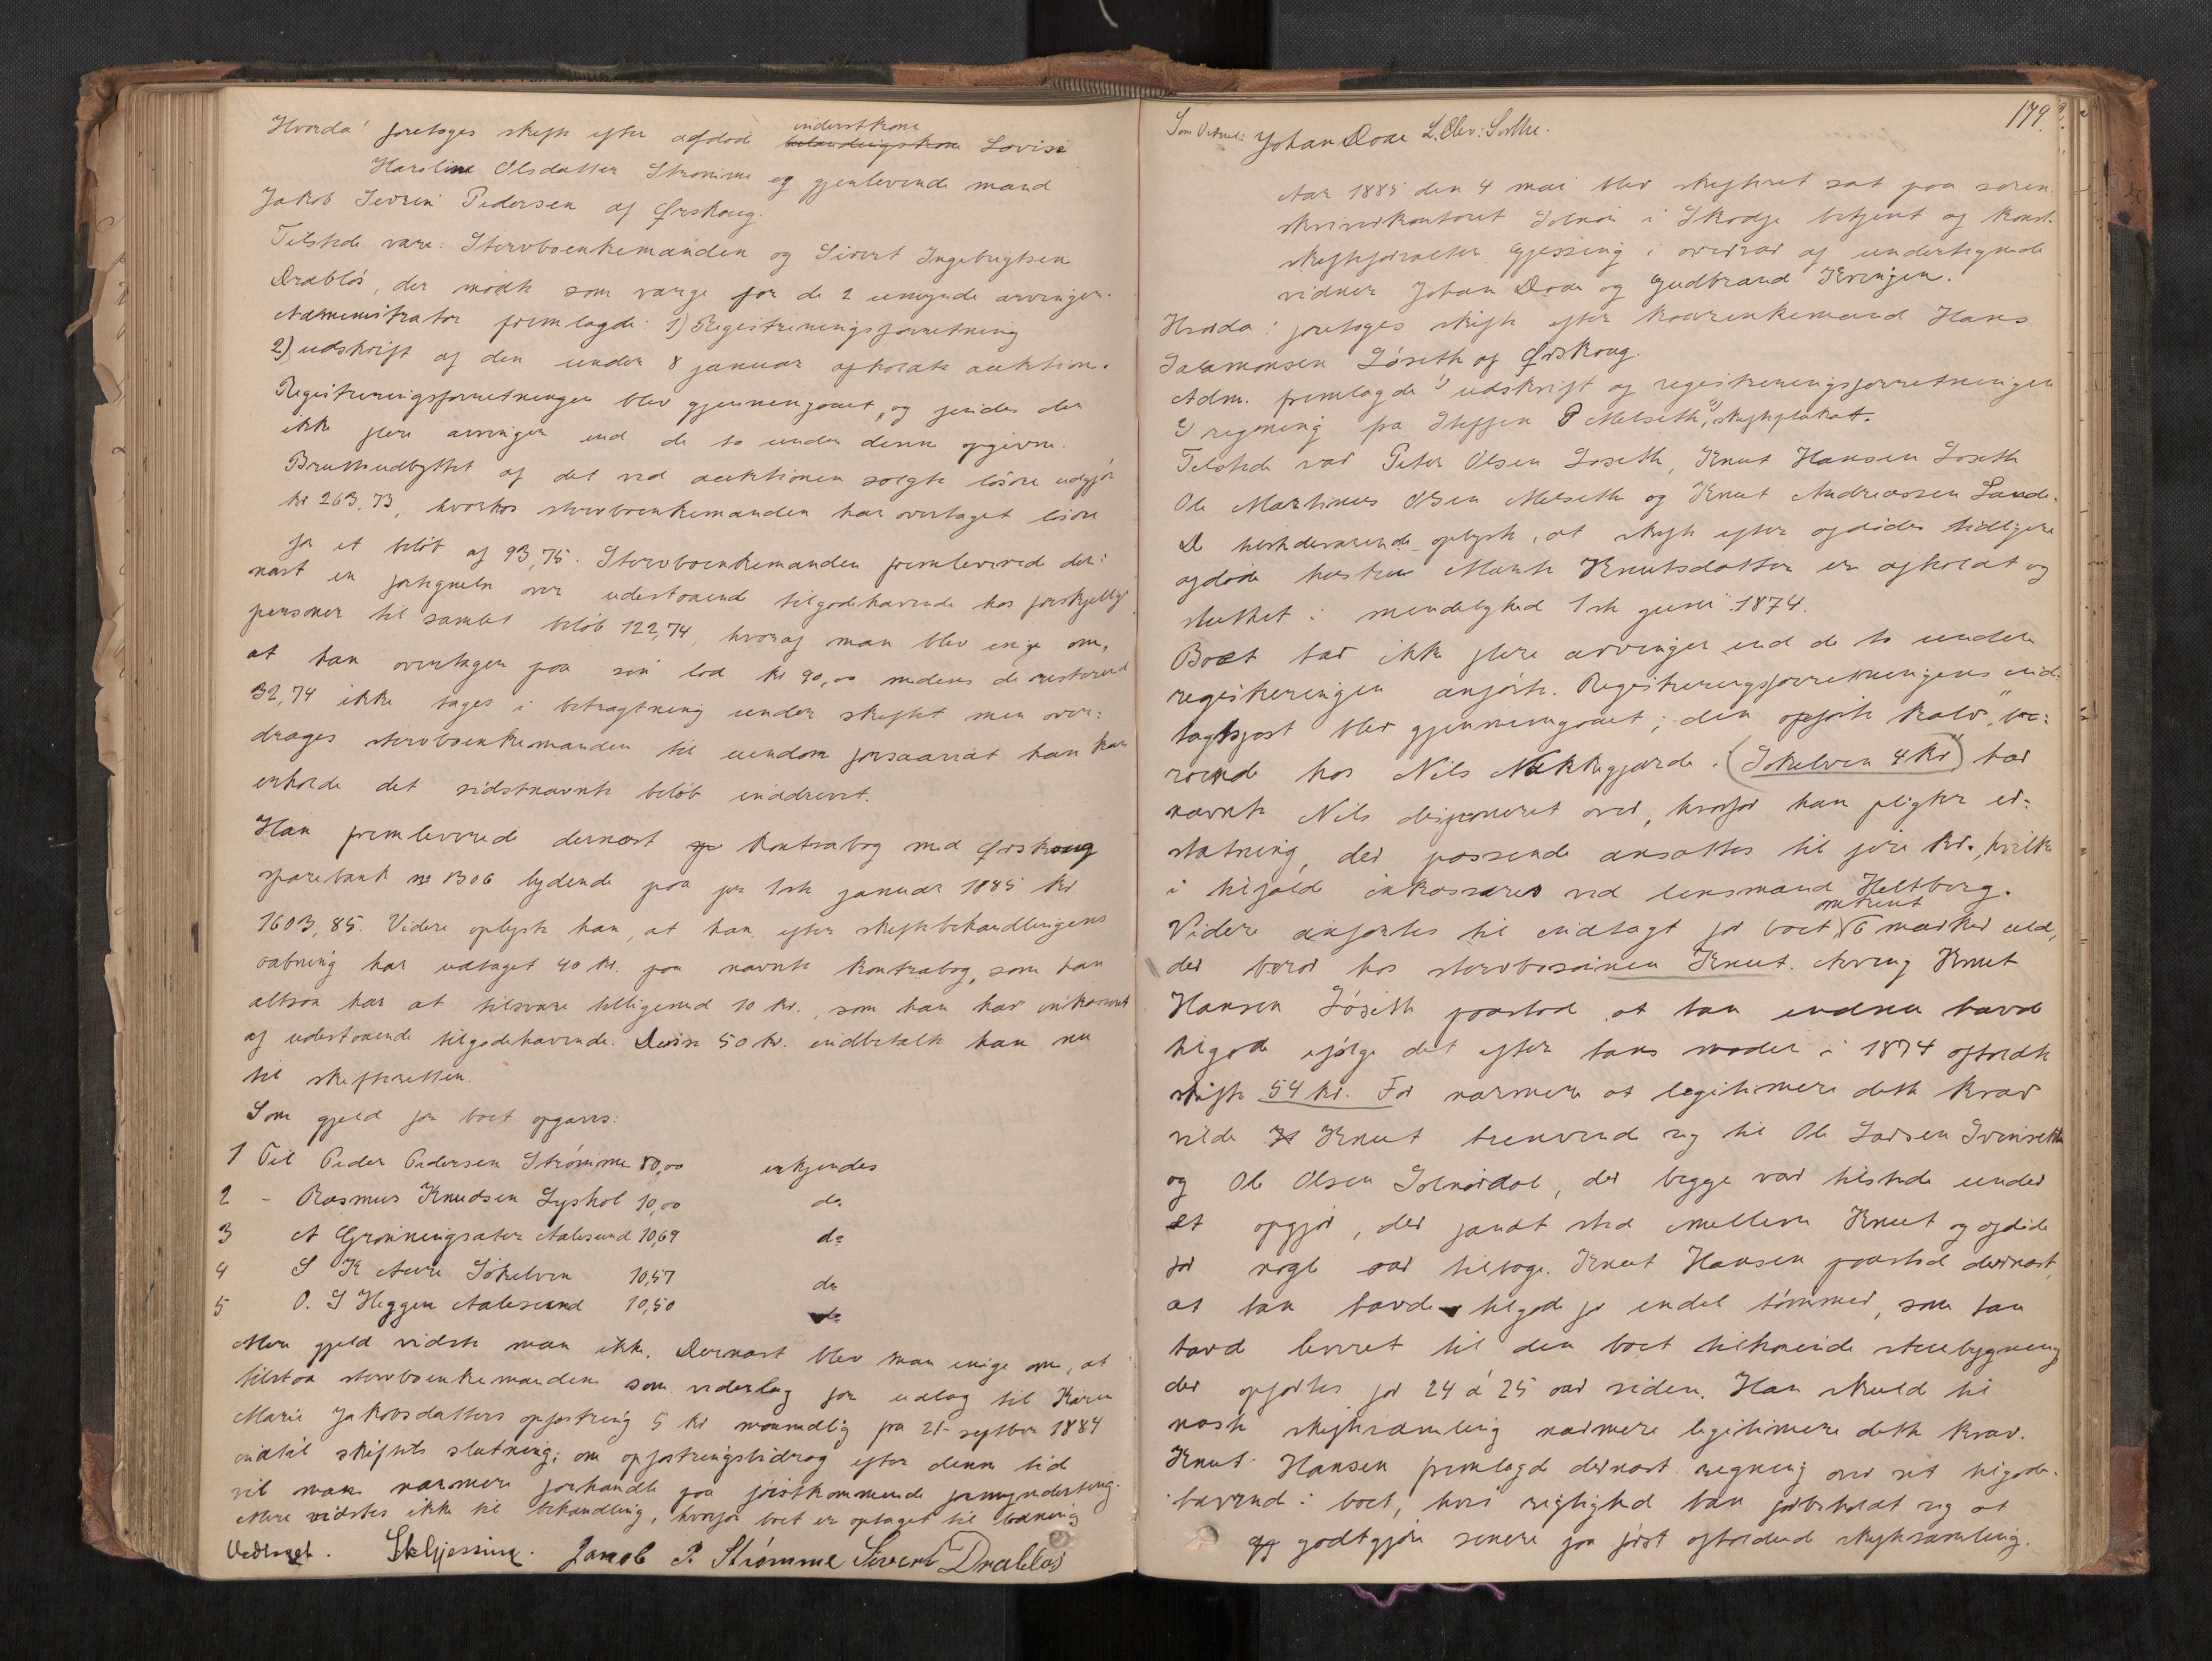 Hvorda! foretoges skifte efter afdøde inderstkone Lovise
Karoline Olsdatter Strømme og gjenlevende mand
Jakob Severin Pedersen af Ørskoug.
Tilstede vare: Stervboenkemanden og Sivert Ingebrigtsen
Drabløs, der mødte som værge for de 2 umynde arvinger.
Administrator fremlagde: 1) Registreringsforretning
2) udskrift af den under 8 januar afholdte auktion.
Registreringsforretningen blev gjennemgaaet, og findes der
ikke flere arvinger end de to under denne opgivne.
Bruttoudbyttet af det ved auktionen solgte løsøre udgjør
kr 263,73, hvorhos stervboenkemanden har overtaget løsøre
for et beløb af 93,75. Stervboenkemanden fremleverede der-
næst en fortegnelse over udestaaende tilgodehavende hos forskjellige
personer til samlet beløb 122,74, hvoraf man blev enige om,
at han overtager paa sin lod kr 90,00 medens de resterende
32,74 ikke tages i betragtning under skiftet men over-
drages stervboenkemanden til eiendom forsaavidt han kan
erholde det sidstnævnte beløb inddrevet.
Han fremleverede dernæst kontrabog med Ørskoug
sparebank no 1306 lydende paa pr 1ste januar 1885 kr.
1603,85. Videre oplyste han, at han efter skiftebehandlingens
aabning har udtaget 40 kr. paa nævnte kontrabog, som han
altsaa har at tilsvare tilligemed 10 kr., som han har inkasseret
af udestaaende tilgodehavende. Disse 50 kr. indbetalte han nu
til skifteretten.
Som gjeld for boet opgaves:
1 Til Peder Pedersen Strømme 80,00 erkjendes
2 - Rasmus Knudsen Lyshol 10,00 do
3 A Grønningsæter Aalesund 10,69 do
4 S K Aure Søkelven 10,57 do
5 O. S Heggen Aalesund 10,50 do
Mere gjeld vidste man ikke. Dernæst blev man enige om, at
tilstaa stervboenkemanden som vederlag for udlæg til Karen
Marie Jakobsdatters opfostring 5 kr maanedlig fra 21 septber 1884
indtil skiftets slutning; om opfostringsbidrag efter denne tid
vil man nærmere forhandle paa førstkommende formynderting.
Mere vidstes ikke til behandling, hvorfor boet er optaget til lodning
Vedtaget. SkGjessing. Jacob P. Strømme Sivert Drabløs
179
Som Vidner: Johan Doae L. Elv: Sæthre.
Aar 1885 den 4 mai blev skifteret sat paa soren-
skriverkontoret Solnør i Skodje betjent af konst.
skifteforvalter Gjessing i overvær af undertegnede
vidner Johan Doae og Gudbrand Kringen.
Hvorda! foretoges skifte efter kaarenkemand Hans
Salamonsen Løseth af Ørskoug.
Adm. fremlagde 1) udskrift af registreringsforretningen
2) regning fra Steffen P Melseth, 3) skifteplakat.
Tilstede var Peter Olsen Løseth, Knut Hansen Løseth
Ole Martinus Olsen Melseth og Knut Andreassen Lande.
De tilstedeværende oplyste, at skifte efter afdødes tidligere
afdøde hustru Marte Knutsdatter er afholdt og
sluttet i mindelighed 1ste juni 1874.
Boet har ikke flere arvinger end de to under
registreringen anførte. Registreringsforretningens ind-
tægtspost blev gjennemgaaet; den opførte kalv, "be-
roende hos Nils Nakkegjærde i (Søkelven 4 kr") har
nævnte Nils disponeret over, hvorfor han pligter er-
statning, der passende ansattes til fire kr., hvilke
i tilfælde inkasseres ved lensmand Heltberg.
Videre anførtes til indtægt for boet omtrent 6 marker uld,
der beror hos stervbosønnen Knut. Arving Knut
Hansen Løseth paastod at han endnu havde
tilgode ifølge det efter hans moder i 1874 afholdte
skifte 54 kr. For nærmere at legitimere dette krav
vilde Knut henvende sig til Ole Larsen Svinseth
og Ole Olsen Solnørdal, der begge var tilstede under
et opgjør, der fandt sted mellem Knut og afdøde
for nogle aar tilbage. Knut Hansen paastod dernæst,
at han havde tilgode for endel tømmer, som han
havde leveret til den boet tilhørende stuebygning
der opførtes for 24 á 25 aar siden. Han skulde til
næste skiftesamling nærmere legitimere dette krav.
Knut Hansen fremlagde dernæst regning over sit tilgode-
havende i boet, hvis rigtighed han forbeholdt sig at
godtgjøre senere paa først afholdend skiftesamling.